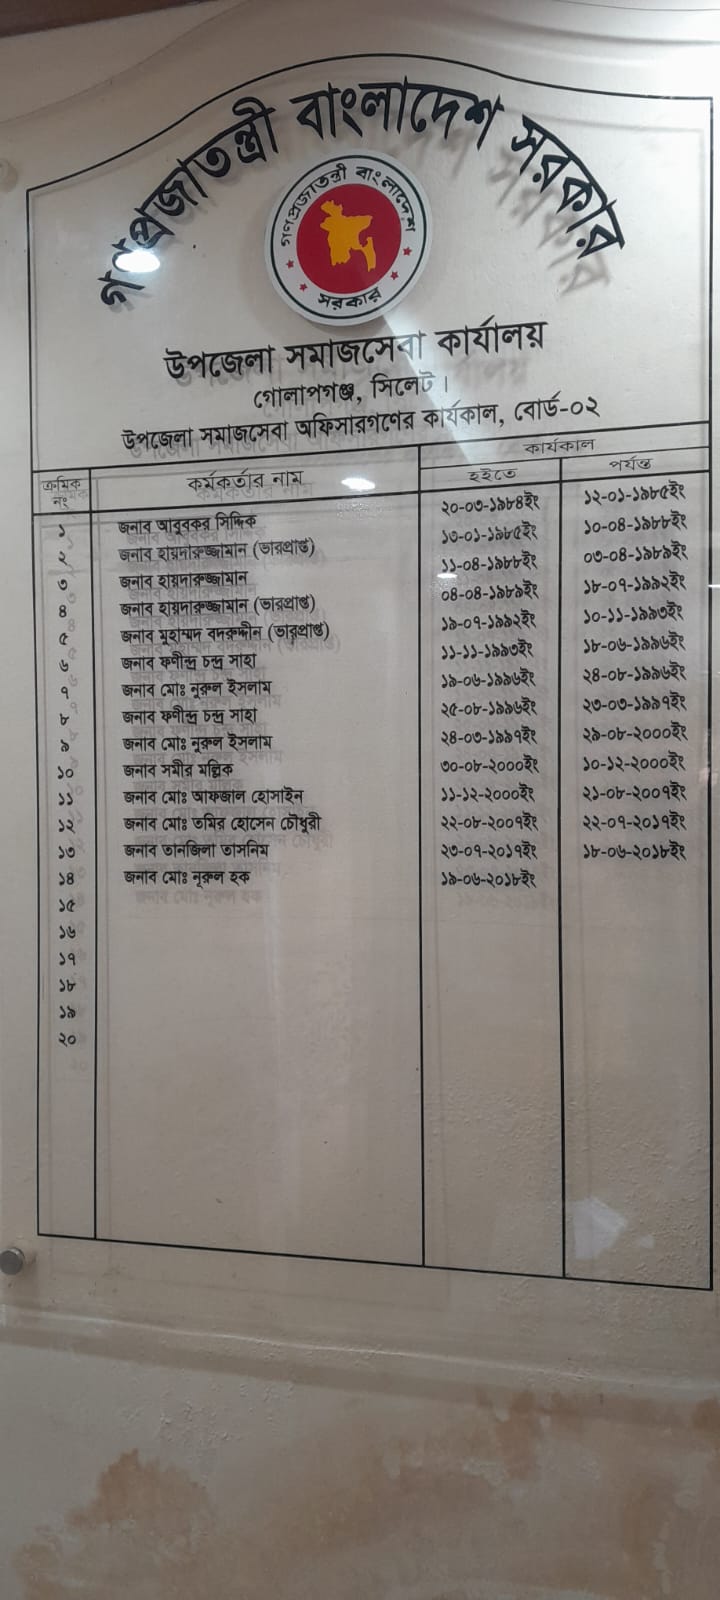 গণপ্রজাতন্ত্রী বাংলাদেশ সরকার
গণপ্রজাতন্ত্রী বাংলাদেশ
সরকার
উপজেলা সমাজসেবা কার্যালয়
গোলাপগঞ্জ, সিলেট।
উপজেলা সমাজসেবা অফিসারগণের কার্যকাল, বোর্ড-০২
ক্রমিক নং কর্মকর্তার নাম কার্যকাল
হইতে পর্যন্ত
১ জনাব আবুবকর সিদ্দিক ২০-০৩-১৯৮৪ইং ১২-০১-১৯৮৫ইং
২ জনাব হায়দারুজ্জামান (ভারপ্রাপ্ত) ১৩-০১-১৯৮৫ইং ১০-০৪-১৯৮৮ইং
৩ জনাব হায়দারুজ্জামান ১১-০৪-১৯৮৮ইং ০৩-০৪-১৯৮৯ইং
৪ জনাব হায়দারুজ্জামান (ভারপ্রাপ্ত) ০৪-০৪-১৯৮৯ইং ১৮-০৭-১৯৯২ইং
৫ জনাব মুহাম্মদ বদরুদ্দীন (ভারপ্রাপ্ত) ১৯-০৭-১৯৯২ইং ১০-১১-১৯৯৩ইং
৬ জনাব ফণীন্দ্র চন্দ্র সাহা ১১-১১-১৯৯৩ইং ১৮-০৬-১৯৯৬ইং
৭ জনাব মোঃ নুরুল ইসলাম ১৯-০৬-১৯৯৬ইং ২৪-০৮-১৯৯৬ইং
৮ জনাব ফণীন্দ্র চন্দ্র সাহা ২৫-০৮-১৯৯৬ইং ২৩-০৩-১৯৯৭ইং
৯ জনাব মোঃ নুরুল ইসলাম ২৪-০৩-১৯৯৭ইং ২৯-০৮-২০০০ইং
১০ জনাব সমীর মল্লিক ৩০-০৮-২০০০ইং ১০-১২-২০০০ইং
১১ জনাব মোঃ আফজাল হোসাইন ১১-১২-২০০০ইং ২১-০৮-২০০৭ইং
১২ জনাব মোঃ তমির হোসেন চৌধুরী ২২-০৮-২০০৭ইং ২২-০৭-২০১৭ইং
১৩ জনাব তানজিলা তাসনিম ২৩-০৭-২০১৭ইং ১৮-০৬-২০১৮ইং
১৪ জনাব মোঃ নূরুল হক ১৯-০৬-২০১৮ইং
১৫
১৬
১৭
১৮
১৯
২০